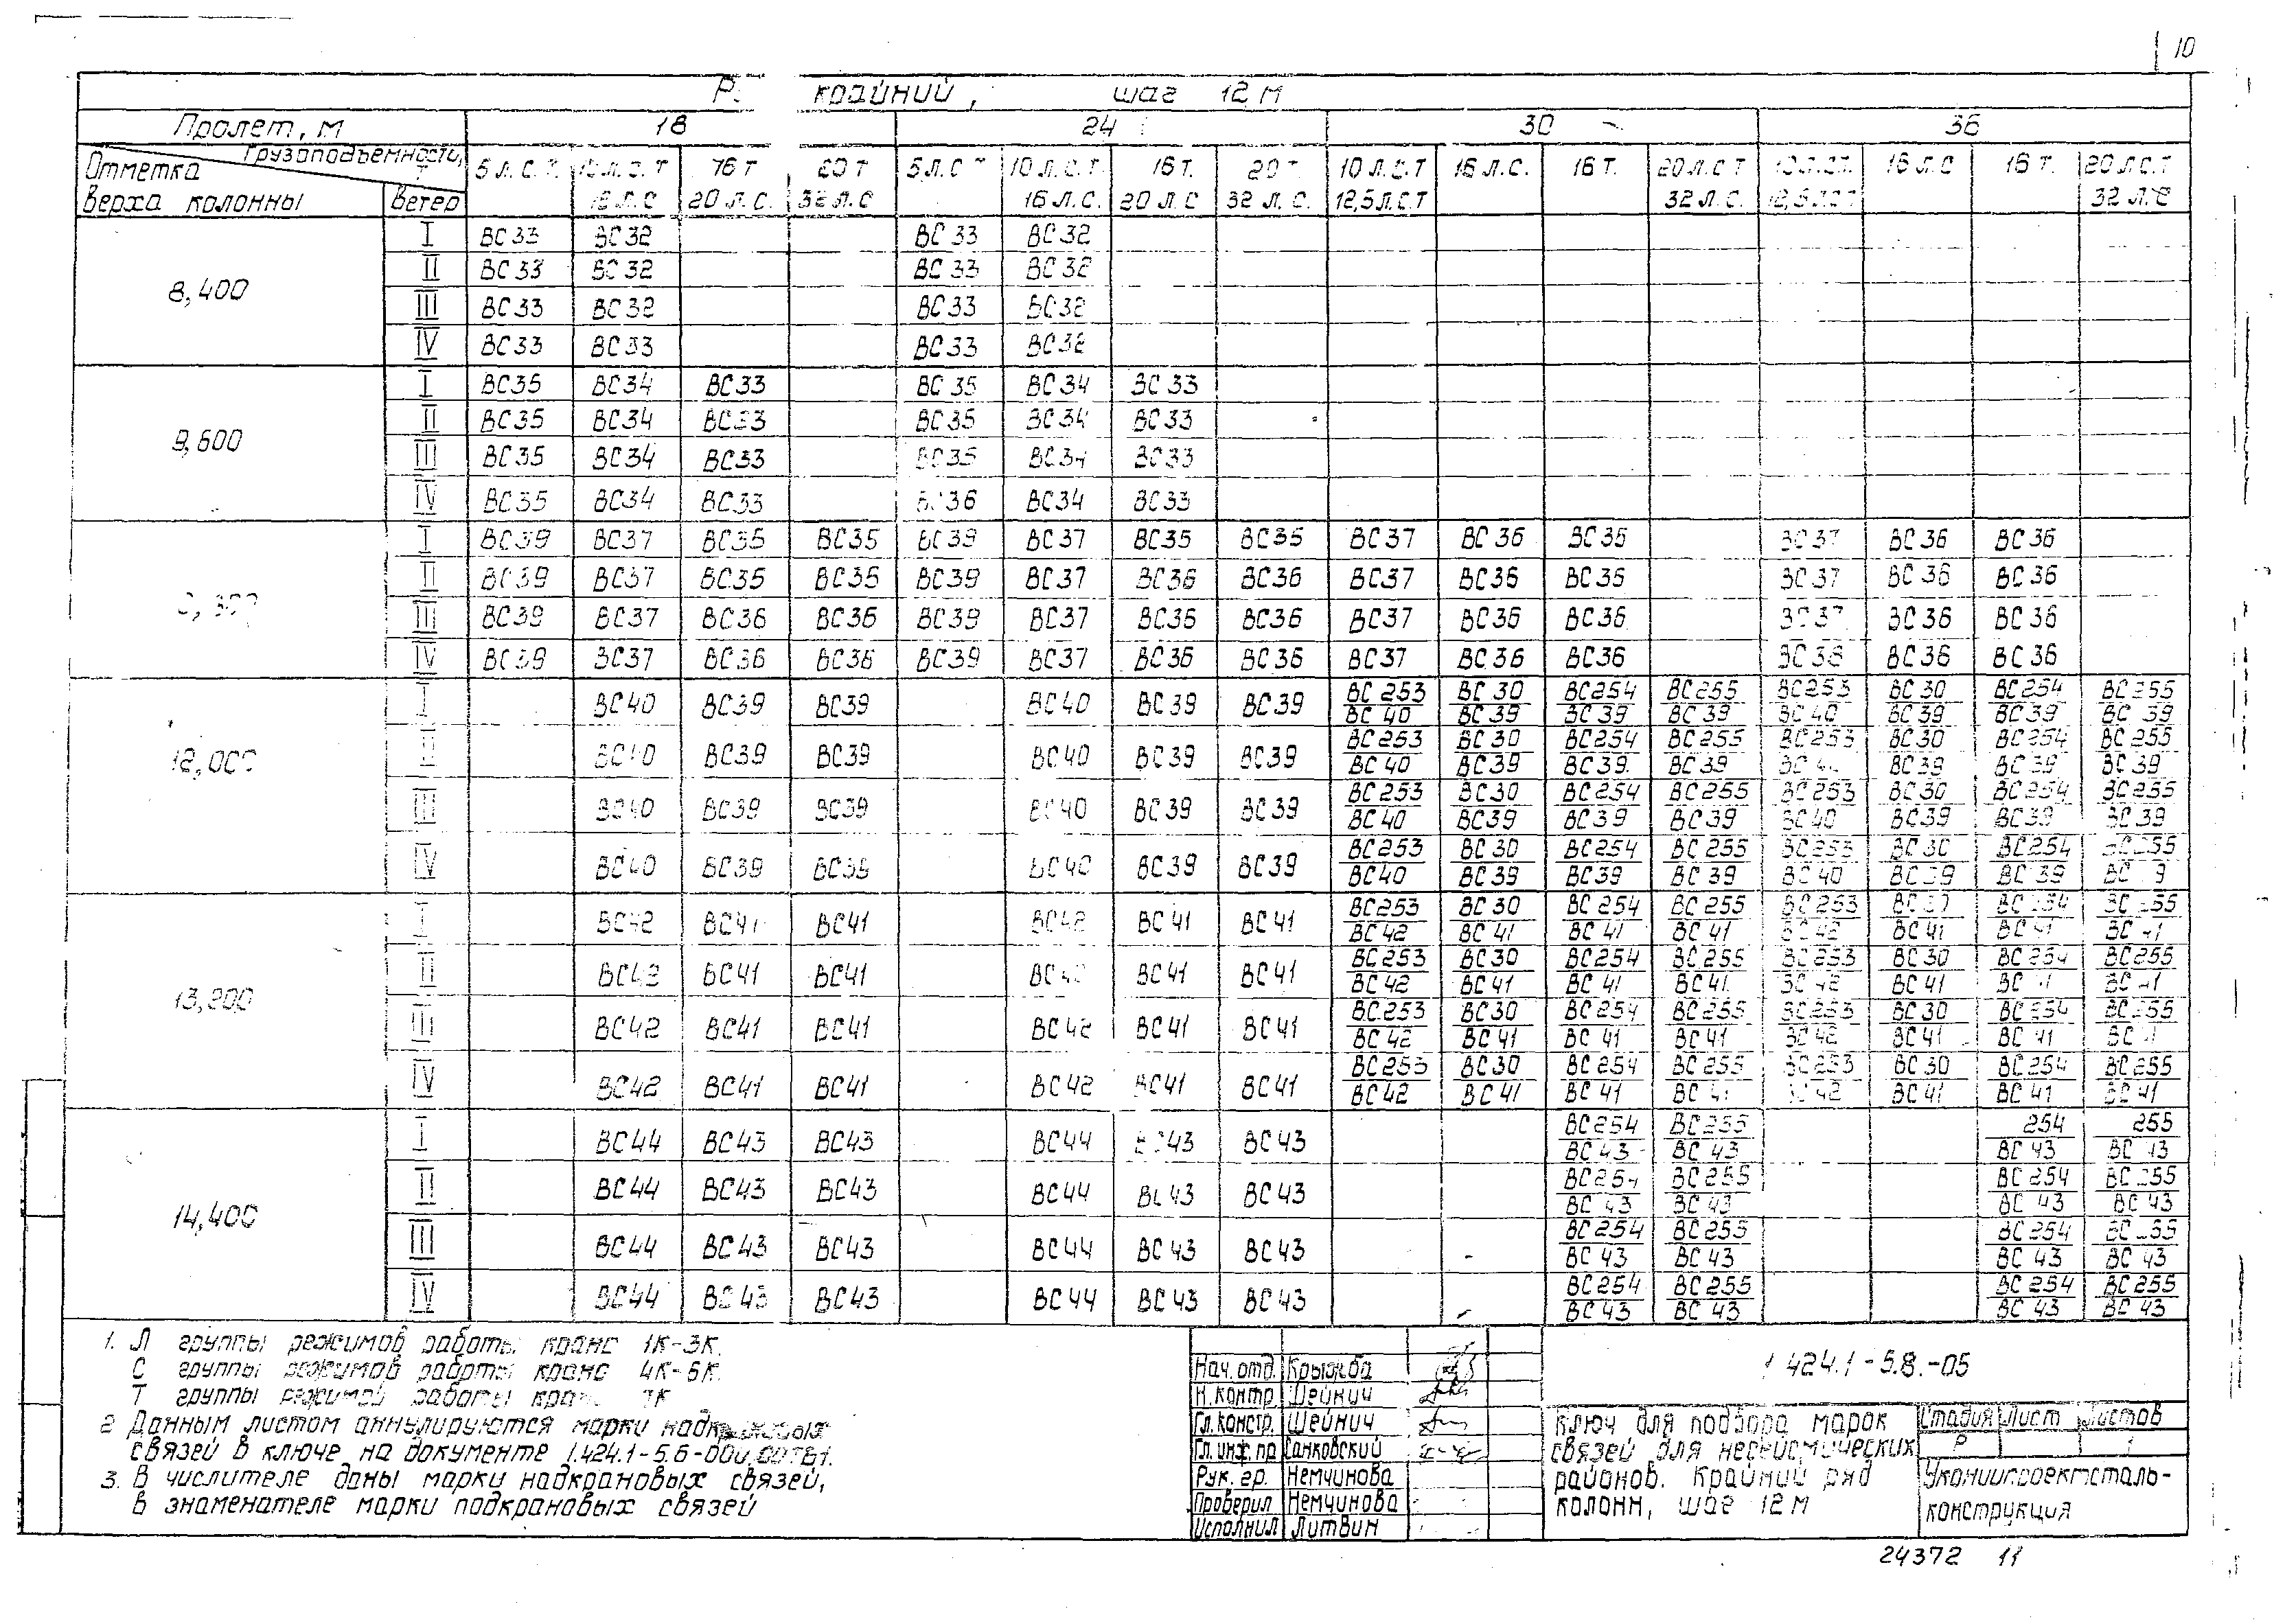 10
крайний, шаг 12 м
Пролет, м 18 24 30 36
Грузоподъемность, т
Отметка верха колонны Ветер
5 л.с.т. 10 л.с.т 16 т 20 т 5 л.с 10 л.с.т. 16 т. 20 т. 10 л.с.т 16 л.с. 16 т. 20 л.с т 16 л.с 16 т. 20 л.с.т
16 л.с 20 л.с. 32 л.с 16 л.с. 20 л.с 32 л.с. 12,5 л.с.т 32 л.с. 32 л.с
8,400
I ВС33 ВС32 ВС33 ВС32
II ВС33 ВС32 ВС33 ВС32
III ВС33 ВС32 ВС33 ВС32
IV ВС33 ВС33 ВС33 ВС32
9,600
I ВС35 ВС34 ВС33 ВС35 ВС34 ВС33
II ВС35 ВС34 ВС33 ВС35 ВС34 ВС33
III ВС35 ВС34 ВС33 ВС35 ВС34 ВС33
IV ВС35 ВС34 ВС33 ВС36 ВС34 ВС33
I ВС39 ВС37 ВС35 ВС35 ВС39 ВС37 ВС35 ВС35 ВС37 ВС36 ВС36 ВС37 ВС36 ВС36
II ВС39 ВС37 ВС35 ВС35 ВС39 ВС37 ВС36 ВС36 ВС37 ВС36 ВС36 ВС37 ВС36 ВС36
III ВС39 ВС37 ВС36 ВС36 ВС39 ВС37 ВС36 ВС36 ВС37 ВС36 ВС36 ВС37 ВС36 ВС36
IV ВС39 ВС37 ВС36 ВС36 ВС39 ВС37 ВС36 ВС36 ВС37 ВС36 ВС36 ВС36 ВС36
12,000
I ВС40 ВС39 ВС39 ВС40 ВС39 ВС39 ВС253 ВС30 ВС254 ВС255 ВС253 ВС30 ВС254 ВС255
ВС40 ВС39 ВС39 ВС39 ВС40 ВС39 ВС39 ВС39
II ВС40 ВС39 ВС39 ВС40 ВС39 ВС39 ВС253 ВС30 ВС254 ВС255 ВС253 ВС30 ВС254 ВС255
ВС40 ВС39 ВС39 ВС39 ВС39 ВС39 ВС39
III ВС40 ВС39 ВС39 ВС40 ВС39 ВС39 ВС253 ВС30 ВС254 ВС255 ВС253 ВС30 ВС254 ВС255
ВС40 ВС39 ВС39 ВС39 ВС40 ВС39 ВС39 ВС39
IV ВС40 ВС39 ВС39 ВС40 ВС39 ВС39 ВС253 ВС30 ВС254 ВС255 ВС253 ВС30 ВС254 ВС255
ВС40 ВС39 ВС39 ВС39 ВС40 ВС39 ВС39
13,200
I ВС42 ВС41 ВС41 ВС42 ВС41 ВС41 ВС253 ВС30 ВС254 ВС255 ВС253
ВС42 ВС41 ВС41 ВС41 ВС42 ВС41 ВС41
II ВС42 ВС41 ВС41 ВС41 ВС41 ВС253 ВС30 ВС254 ВС255 ВС253 ВС30 ВС254 ВС255
ВС42 ВС41 ВС41 ВС41 ВС42 ВС41
III ВС42 ВС41 ВС41 ВС42 ВС41 ВС41 ВС253 ВС30 ВС254 ВС255 ВС253 ВС30 ВС254 ВС255
ВС42 ВС41 ВС41 ВС41 ВС42 ВС41 ВС41
IV ВС42 ВС41 ВС41 ВС42 ВС41 ВС41 ВС253 ВС30 ВС254 ВС255 ВС253 ВС30 ВС254 ВС255
ВС42 ВС41 ВС41 ВС41 ВС42 ВС41 ВС41 ВС41
14,400
I ВС44 ВС43 ВС43 ВС44 ВС43 ВС43 ВС254 ВС255 254 255
ВС43 ВС43 ВС43 ВС43
II ВС44 ВС43 ВС43 ВС44 ВС43 ВС43 ВС254 ВС255 ВС254 ВС255
ВС43 ВС43 ВС43 ВС43
III ВС44 ВС43 ВС43 ВС44 ВС43 ВС43 ВС254 ВС255 ВС254 ВС255
ВС43 ВС43 ВС43 ВС43
IV ВС44 ВС43 ВС43 ВС44 ВС43 ВС43 ВС254 ВС255 ВС254 ВС255
ВС43 ВС43 ВС43 ВС43
1. Л группы режимов работы кранс 1К-3К.
С группы режимов работы кранс 4К-6К.
Т группы режимов работы кран 7К
2 Данным листом аннулируются марки надкрановых
связей в ключе на документе
3. В числителе даны марки надкрановых связей,
в знаменателе марки подкрановых связей
Нач. отд. Крыжба
Н.контр Шейнич
Гл.констр. Шейнич
Гл.инж.пр Санковский
Рук. гр. Немчинова
Проверил Немчинова
Исполнил Литвин
1.424.1-5.8.-05
Ключ для подбора марок
связей для несейсмических
районов. Крайний ряд
колонн, шаг 12 м
Стадия Лист Листов
Р 1
Укрниипроектсталь-
конструкция
24372 11